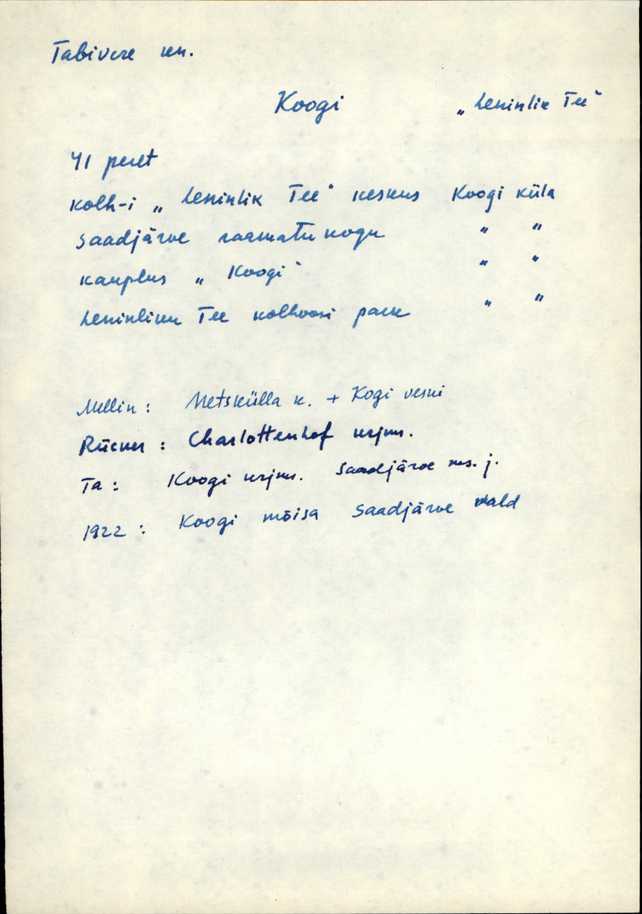 Tabivere kn.
Koogi „Leninlik Tee“
41 peret
kolh-i „Leninlik Tee“ keskus Koogi küla
Saadjärve raamatukogu " "
kauplus „Koogi“ " "
Leninliku Tee kolhoosi park " "
Mellin: Metskülla k. + Kogi veski
Rücker: Charlottenhof krjm.
Ta: Koogi krjm. Saadjärve ms. j.
1922: Koogi mõisa Saadjärve vald